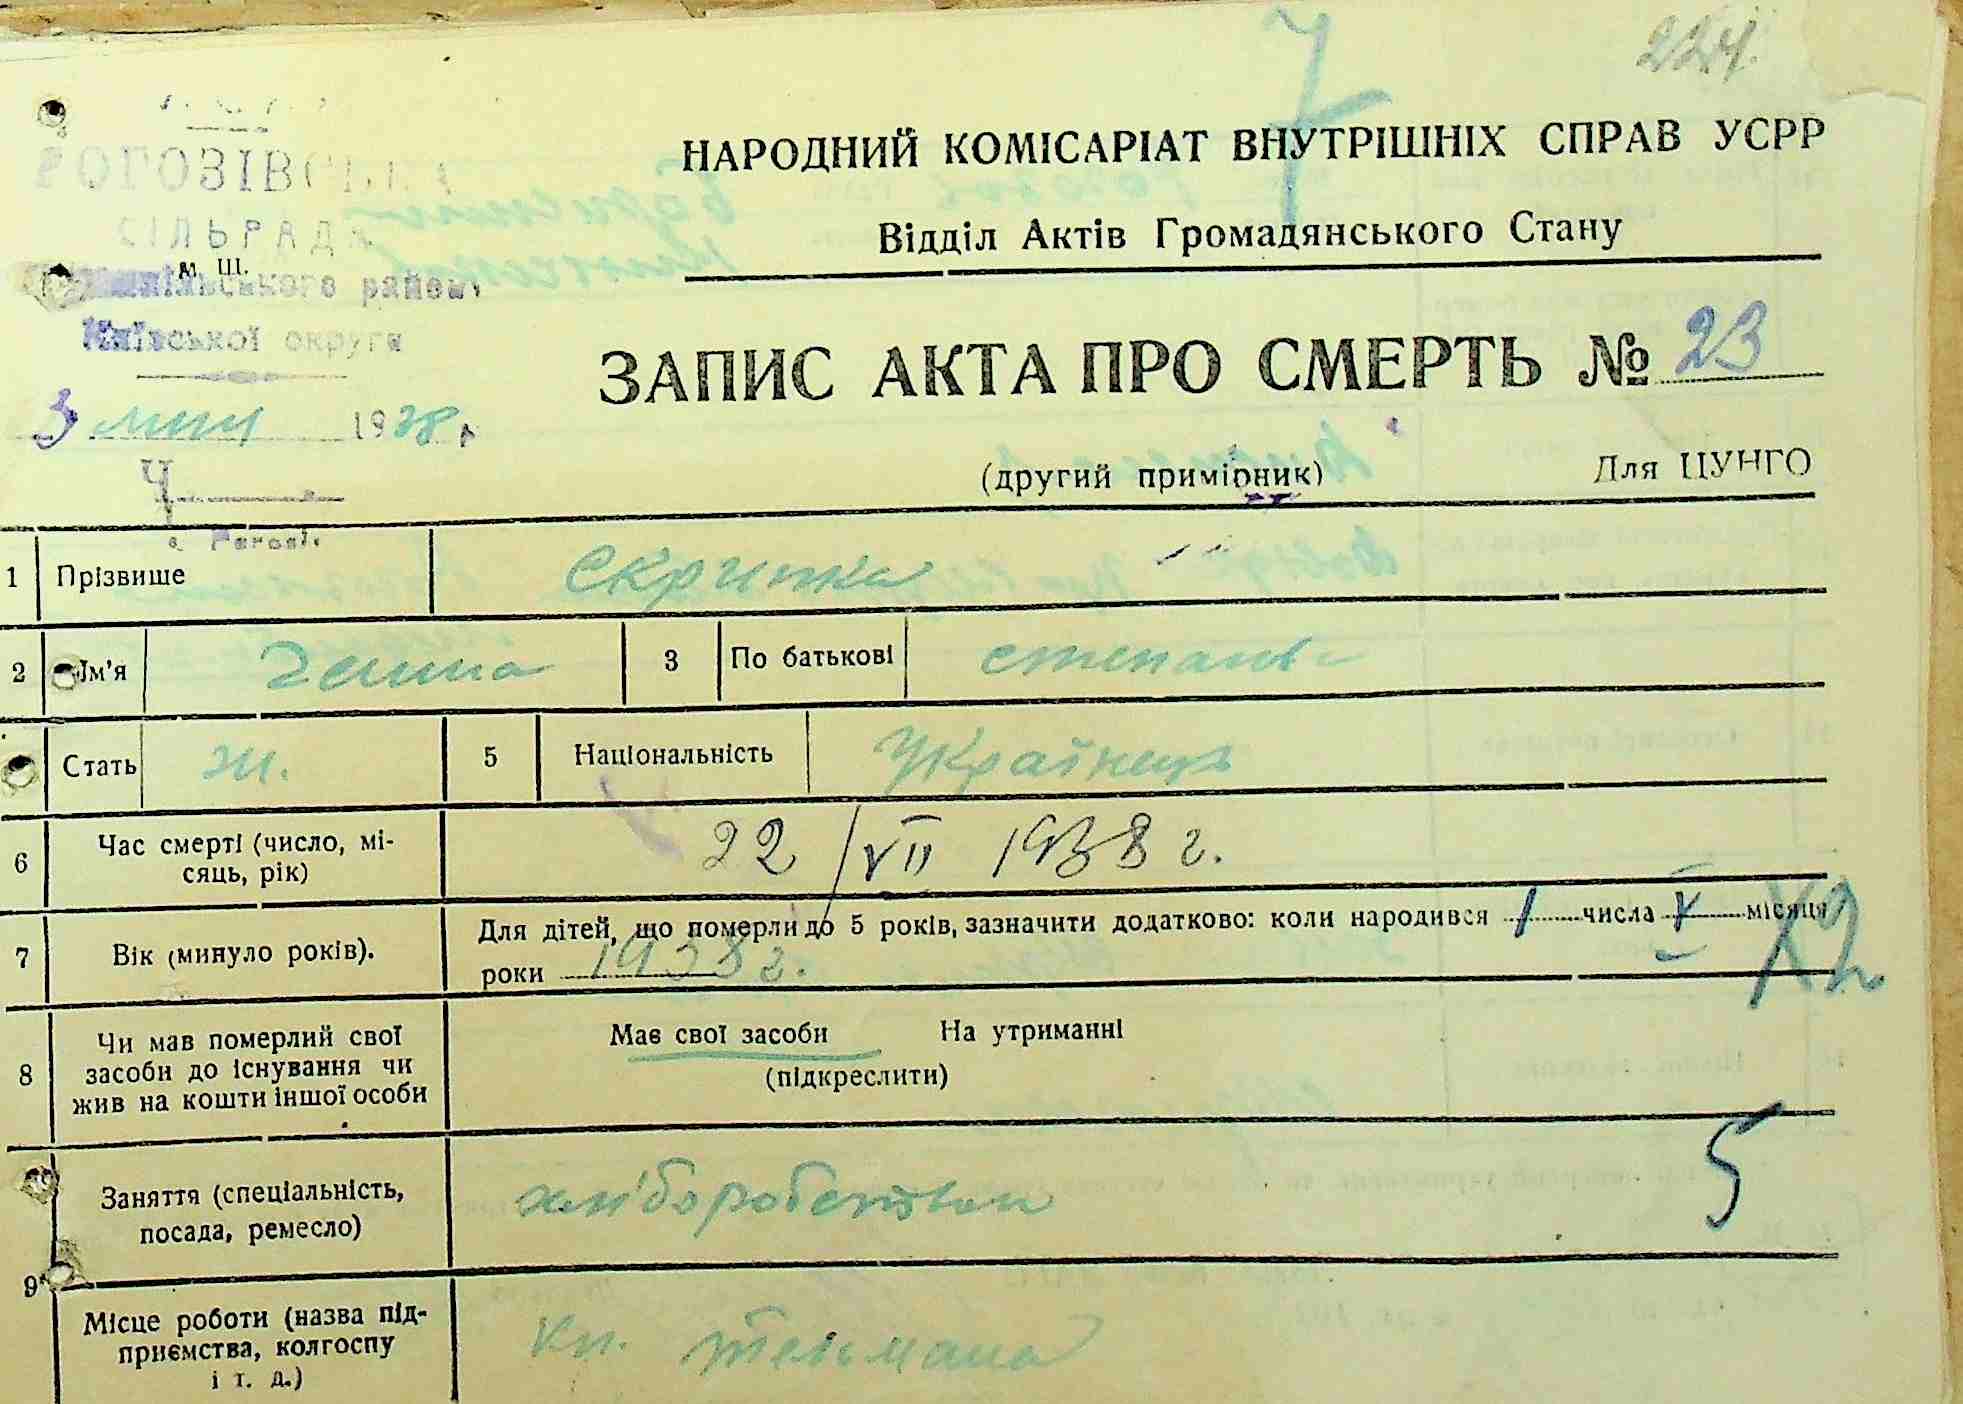 224.
7
РОГОЗІВСЬКА
СІЛЬРАДА
м. ш.
Київської округи
3 1938 р.
Ч.
НАРОДНИЙ КОМІСАРІАТ ВНУТРІШНІХ СПРАВ УСРР
Відділ Актів Громадянського Стану
ЗАПИС АКТА ПРО СМЕРТЬ № 23
(другий примірник) Для ЦУНГО
1 Прізвище Скрипка
2 Ім'я Ганна 3 По батькові степанів
Стать ж. 5 Національність Українець
6 Час смерті (число, мі-
сяць, рік) 22/VII 1938 г.
7 Вік (минуло років). Для дітей, що померли до 5 років, зазначити додатково: коли народився 1 числа V місяця
роки 1938 г.
8 Чи мав померлий свої
засоби до існування чи
жив на кошти іншої особи
Має свої засоби На утриманні
(підкреслити)
Заняття (спеціальність,
посада, ремесло) хліборобство
5
9
Місце роботи (назва під-
приємства, колгоспу
і т. д.)
Тельмана